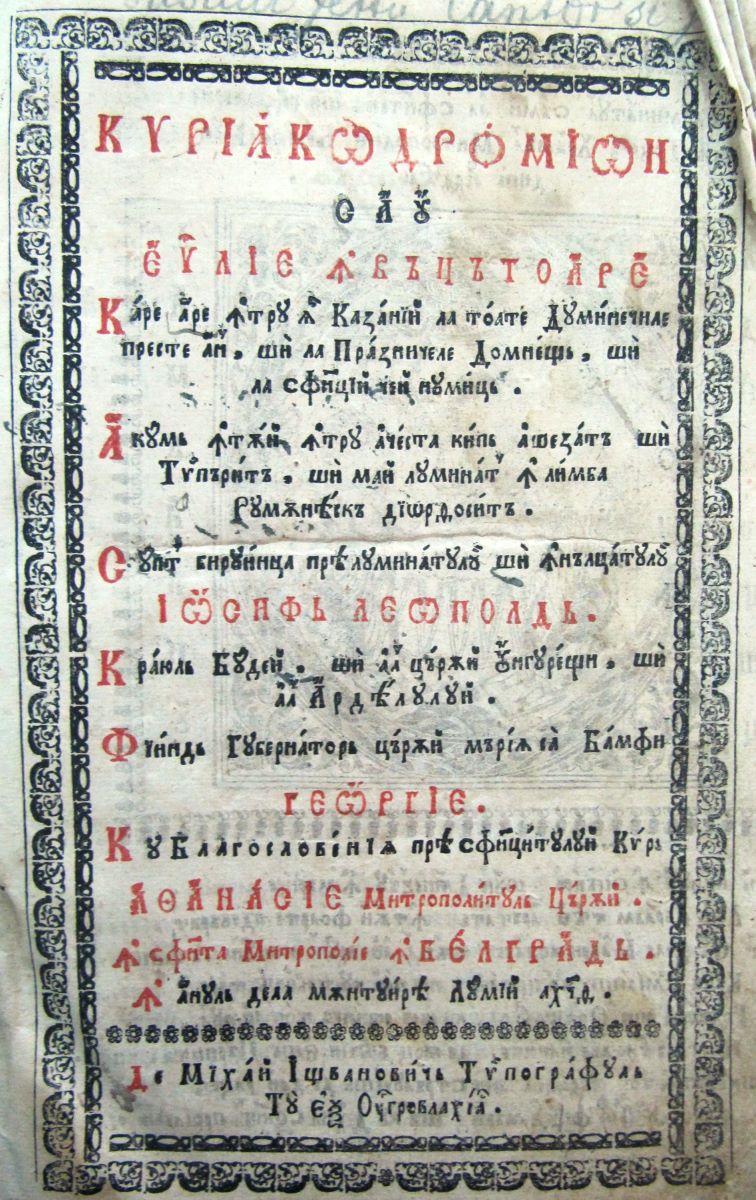 КѴРІА́КѠДРО́МІѠН
САꙊ
ЕѴ҃ЛІЕ ꙞВЪЦЪТОАРЕ
Ка́ре а́ре ꙟ҆тру ꙗ҆ Каза́нїй ла то́лте Дꙋмі́нечиле
престе а҆н꙽, шѝ ла Пра́зничеле Домне́щь, шѝ
ла сфи҃нцїй чей нꙋмиць.
Акꙋмь ꙟ҆тѫ́й ꙟ҆тру аче́ста кипь аꙿшеза́тъ шѝ
Тѵпъри́тъ, шѝ май лꙋмина́т꙽ ꙟ҆ лимба
Рꙋмѫнѣ́скъ дїѡрѳоси́тъ.
Сꙋпт꙽ бирꙋинца прѣлꙋмина́тꙋлꙋ шѝ ꙟ҆нълца́тꙋлꙋ
ІѠ́СИФЬ ЛЕѠПОЛДЬ.
Кра́юль Бꙋдей, шѝ а҆л꙽ цъ́рѫй Оу҆нгꙋре́щи, шѝ
а҆л꙽ А҆рдѣ́лꙋлꙋй.
Фїиндь Гꙋберна́торь цъ́рѫй мърі́ꙗ са̀ Ба́мфи
ГЕѠ́РГІЕ.
Кꙋ Благослове́нїꙗ прѣсфи҃нци́тꙋлꙋй Кѵ́рь
АѲАНА́СІЕ Митрополи́тꙋль Цъ́рѫй.
Ꙟ҆ сфи҃нта Митрополі́е ꙟ҆ БЕ́ЛГРА́ДЬ.
Ꙟ҆ а́нꙋль дела мѫнтꙋи́рѣ Лꙋмїй ахч҃ѳ.
Де Міха́й Іщва́новичь Тѵпогра́фꙋль
Тꙋ ѯ Оу҆гровлахі́ꙗ.